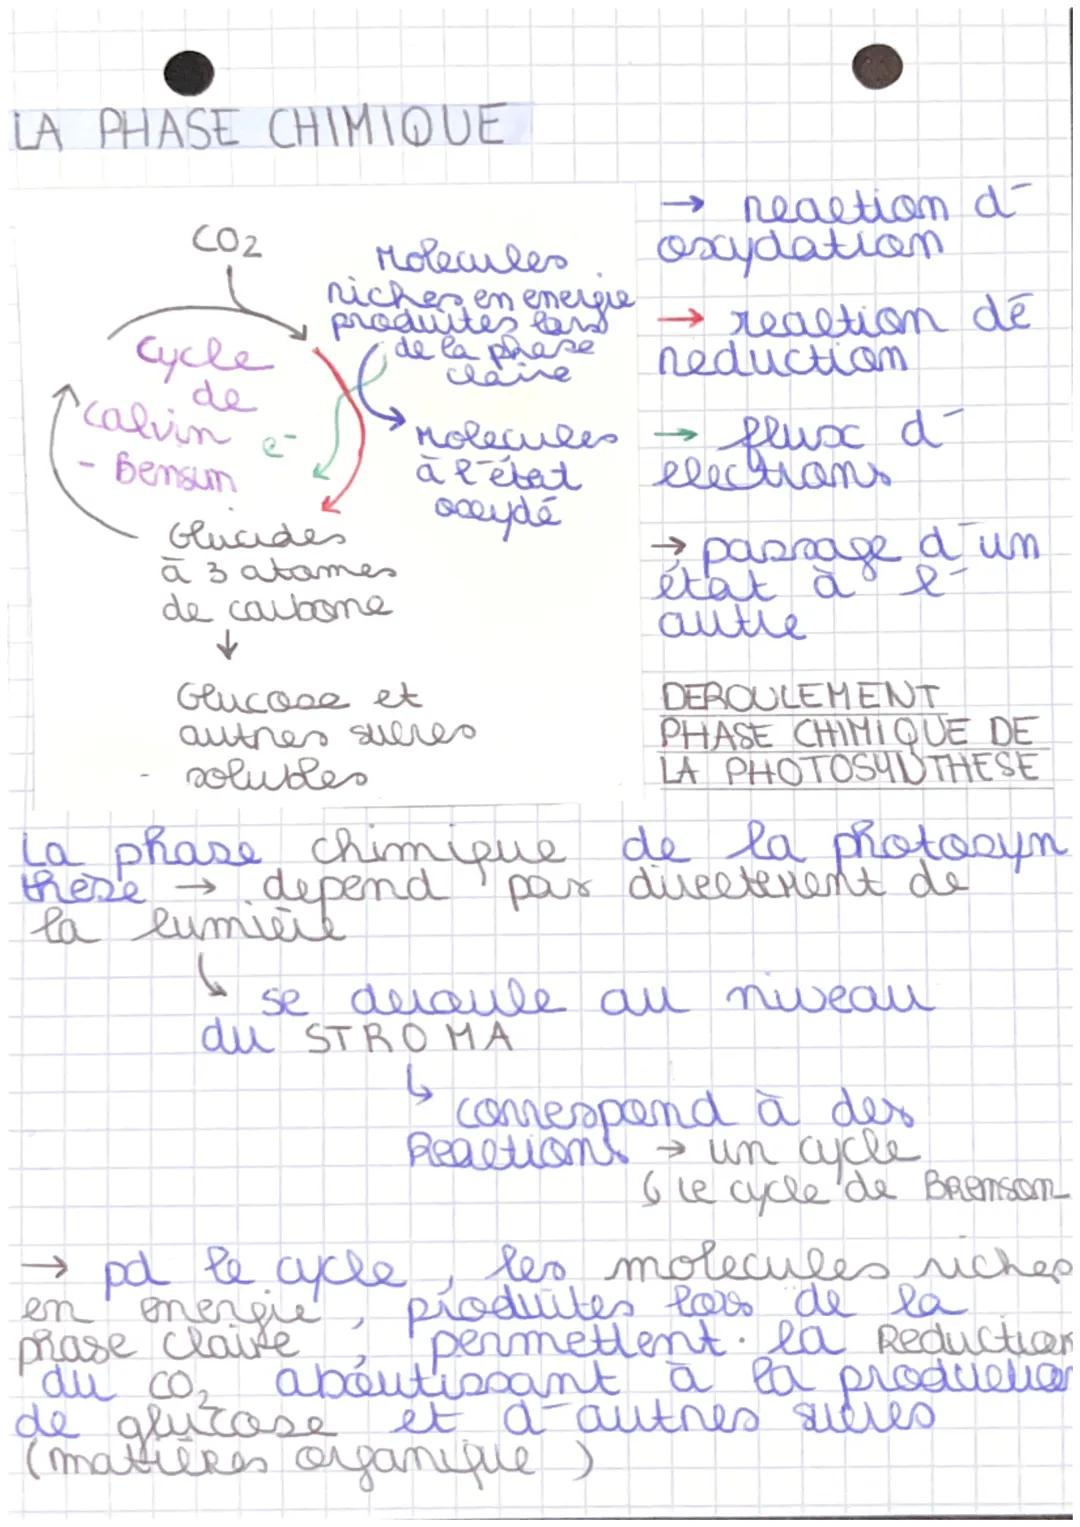 LA PHASE CHIMIQUE
CO2
Molecules
riches en energie
produites lors
de la phase
claire
Cycle
de
Calvin
- Bensun
e-
Molecules
à l'état
oxydé
Glucides
à 3 atomes
de carbone
↓
Glucose et
autres sucres
- solubles
→ reaction d'
oxydation
→ reaction de
reduction
→ flux d'
electrons
→ passage d'un
état à l'
autre
DEROULEMENT
PHASE CHIMIQUE DE
LA PHOTOSYNTHESE
La phase chimique de la photosyn
thèse → depend pas directement de
la lumière
↳ se deroule au niveau
du STROMA
↳ correspond à des
Reactions → un cycle
↳ le cycle de BRENSON
→ pd le cycle, les molecules riches
en energie, produites lors de la
phase claire, permettent la Reduction
du CO2 aboutissant à la production
de glucose et d'autres sucres
(matières organique)